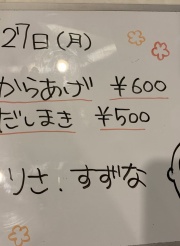 27日(月)
からあげ ¥600
だしまき ¥500
りさ.すずな